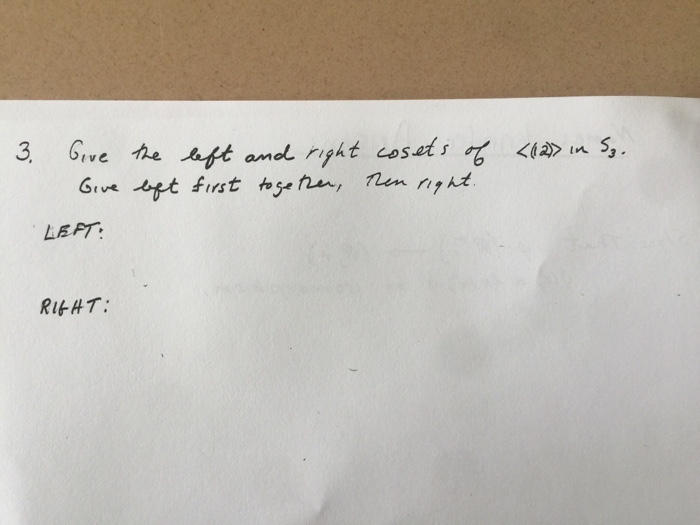 3. Give the left and right cosets of <(12)> in S₃.
Give left first together, then right.
LEFT:
RIGHT: